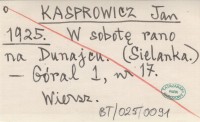 KASPROWICZ Jan
1925. W sobotę rano
na Dunajcu. (Sielanka.)
– Góral 1, nr 17.
Wiersz.
BT/025/0091